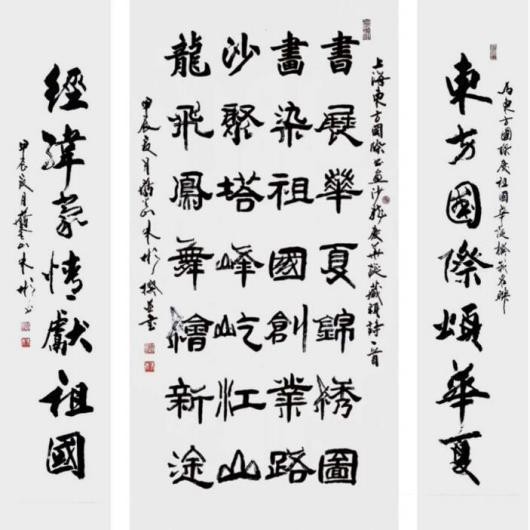 東方國際頌華夏
上海東方國際書畫沙龍慶華誕藏頭詩一首
書展華夏錦綉圖
畫染祖國創業路
沙聚塔峰屹江山
龍飛鳳舞繪新途
甲辰夏月
經緯豪情獻祖國
甲辰夏月